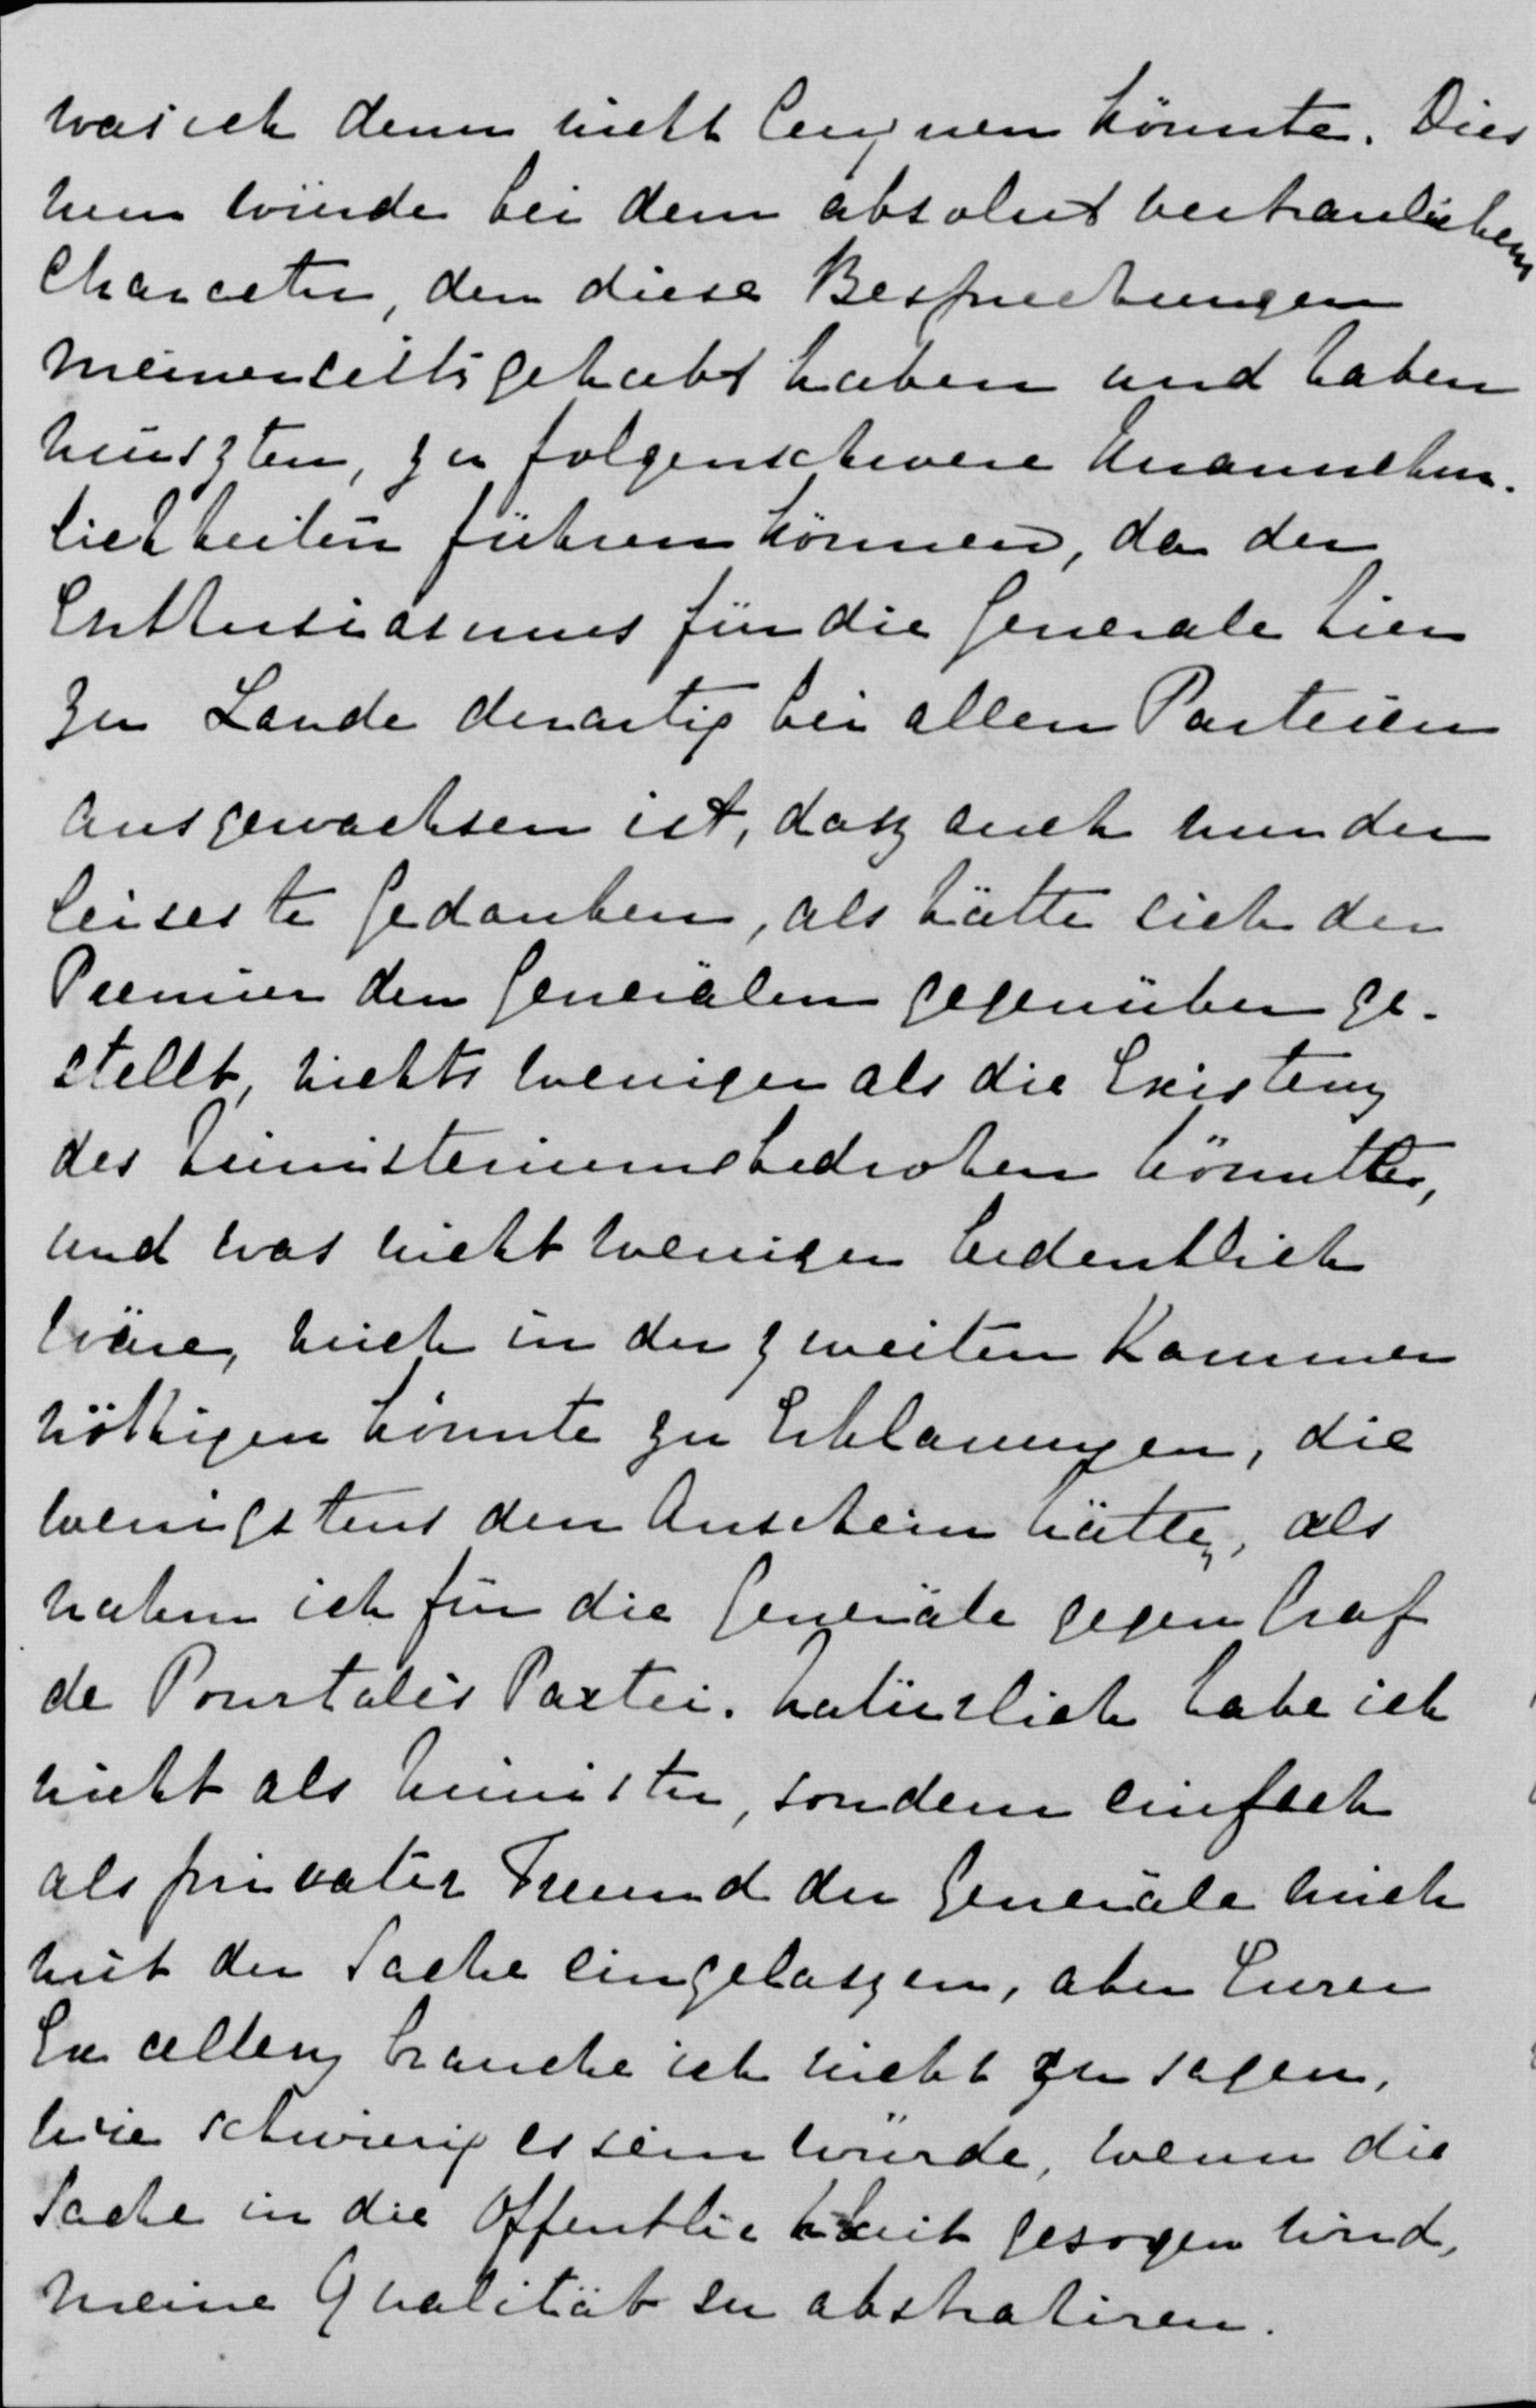 was ich denn nicht leugnen könnte. Dies
nun würde bei dem absolut vertraulichen
Character, den diese Besprechungen
meinerseits gehabt haben und haben
muszten, zu folgenschwere Unannehm-
lichkeiten führen können, da der
Enthusiasmus für die Generale hier
zu Lande derartig bei allen Parteien
ausgewachsen ist, dasz auch nur der
leiseste Gedanken, als hätte sich der
Premier den Generälen gegenüber ge-
stellt, nichts weniger als die Existenz
des Ministeriums bedrohen könnte,
und was nicht weniger bedenklich
wäre, mich in der zweiten Kammer
nöthigen könnte zu Erklarungen, die
wenigstens den Anschein hätte, als
nahm ich für die Generäle gegen Graf
de Pourtalès Partei. Natürlich habe ich
nicht als Minister, sondern einfach
als privater Freund der Generäle mich
mit der Sache eingelaszen, aber Eurer
Excellenz brauche ich nicht zu sagen,
wie schwierig es sein würde, wenn die
Sache in die Öffentlichkeit gesogen wird,
meine Qualität zu abstrahiren.